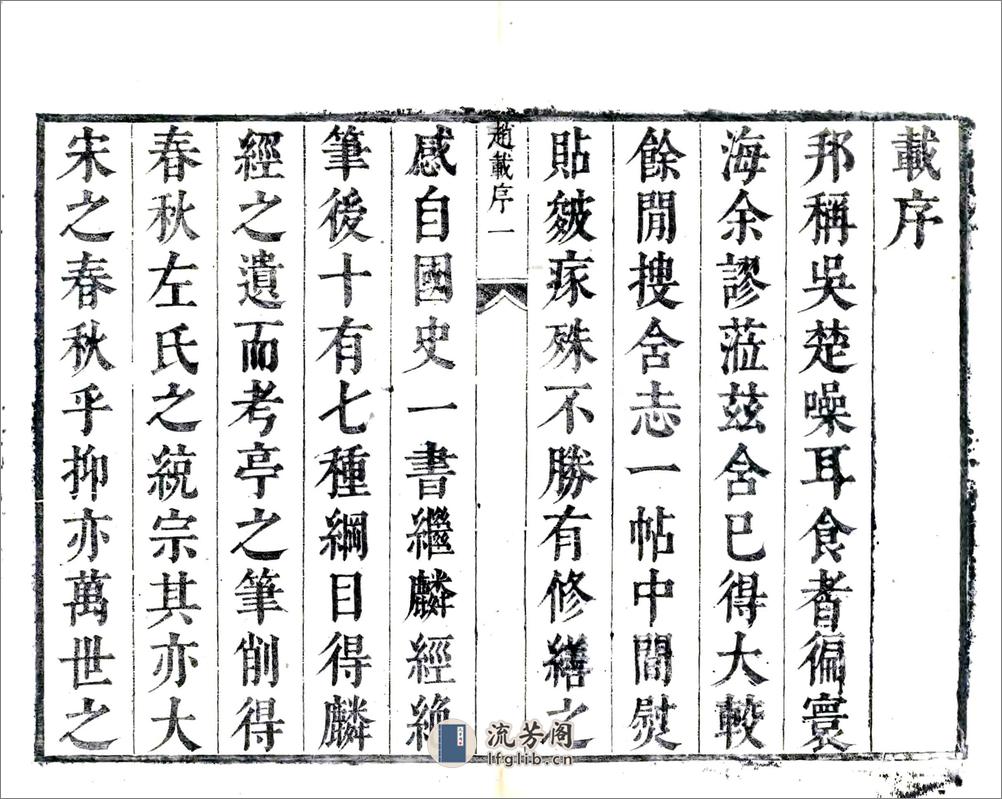 載序
邦稱吳楚噪耳食者徧寰
海余謬蒞茲舍已得大較
餘閒搜舍志一帖中間熨
貼皴㾗殊不勝有修繕之
趙載序 一
感自國史一書繼麟經絶
筆後十有七種綱目得麟
經之遺而考亭之筆削得
春秋左氏之統宗其亦大
宋之春秋乎抑亦萬世之
流芳阁
lfglib.cn